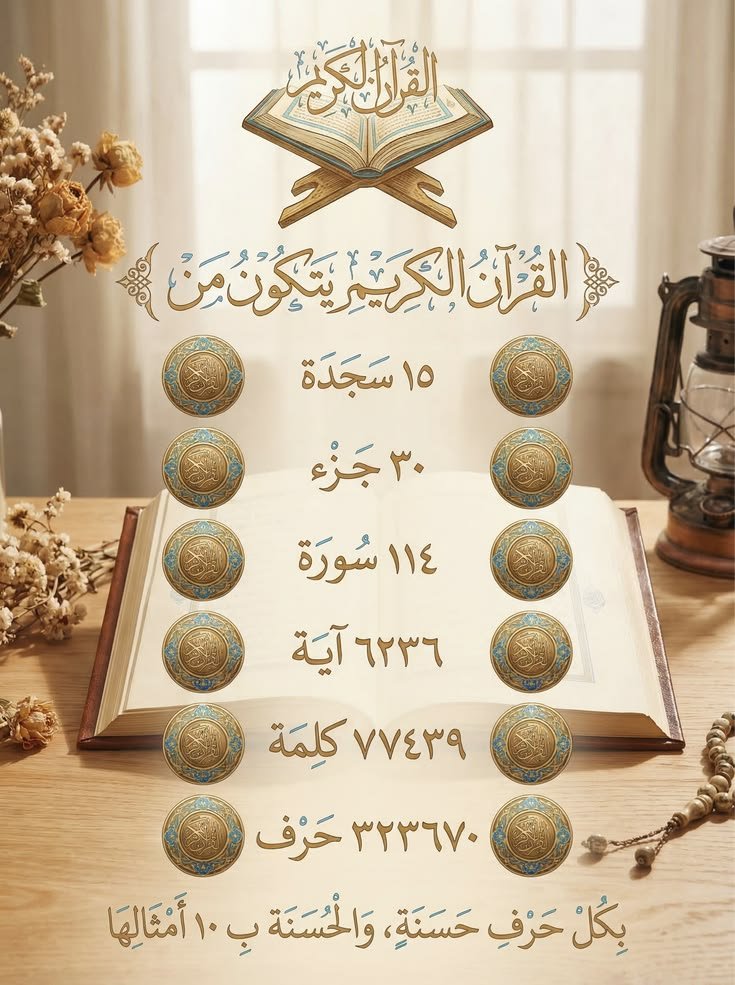 القرآن الكريم
القُرْآنُ الكَرِيَمِ يَتَكُونُ مَنَ
١٥ سَجَدَة
٣٠ جَزْء
١١٤ سُورَة
٦٢٣٦ آيَة
٧٧٤٣٩ كلِمَة
٣٢٣٦٧٠ حَرْف
بِكُلْ حَرْفِ حَسَنَةٍ، وَالْحُسَنَة بِ ١٠ أَمْثَالِهَا